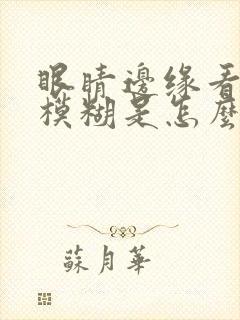 眼睛邊緣看
模糊是怎麼
蘇月華